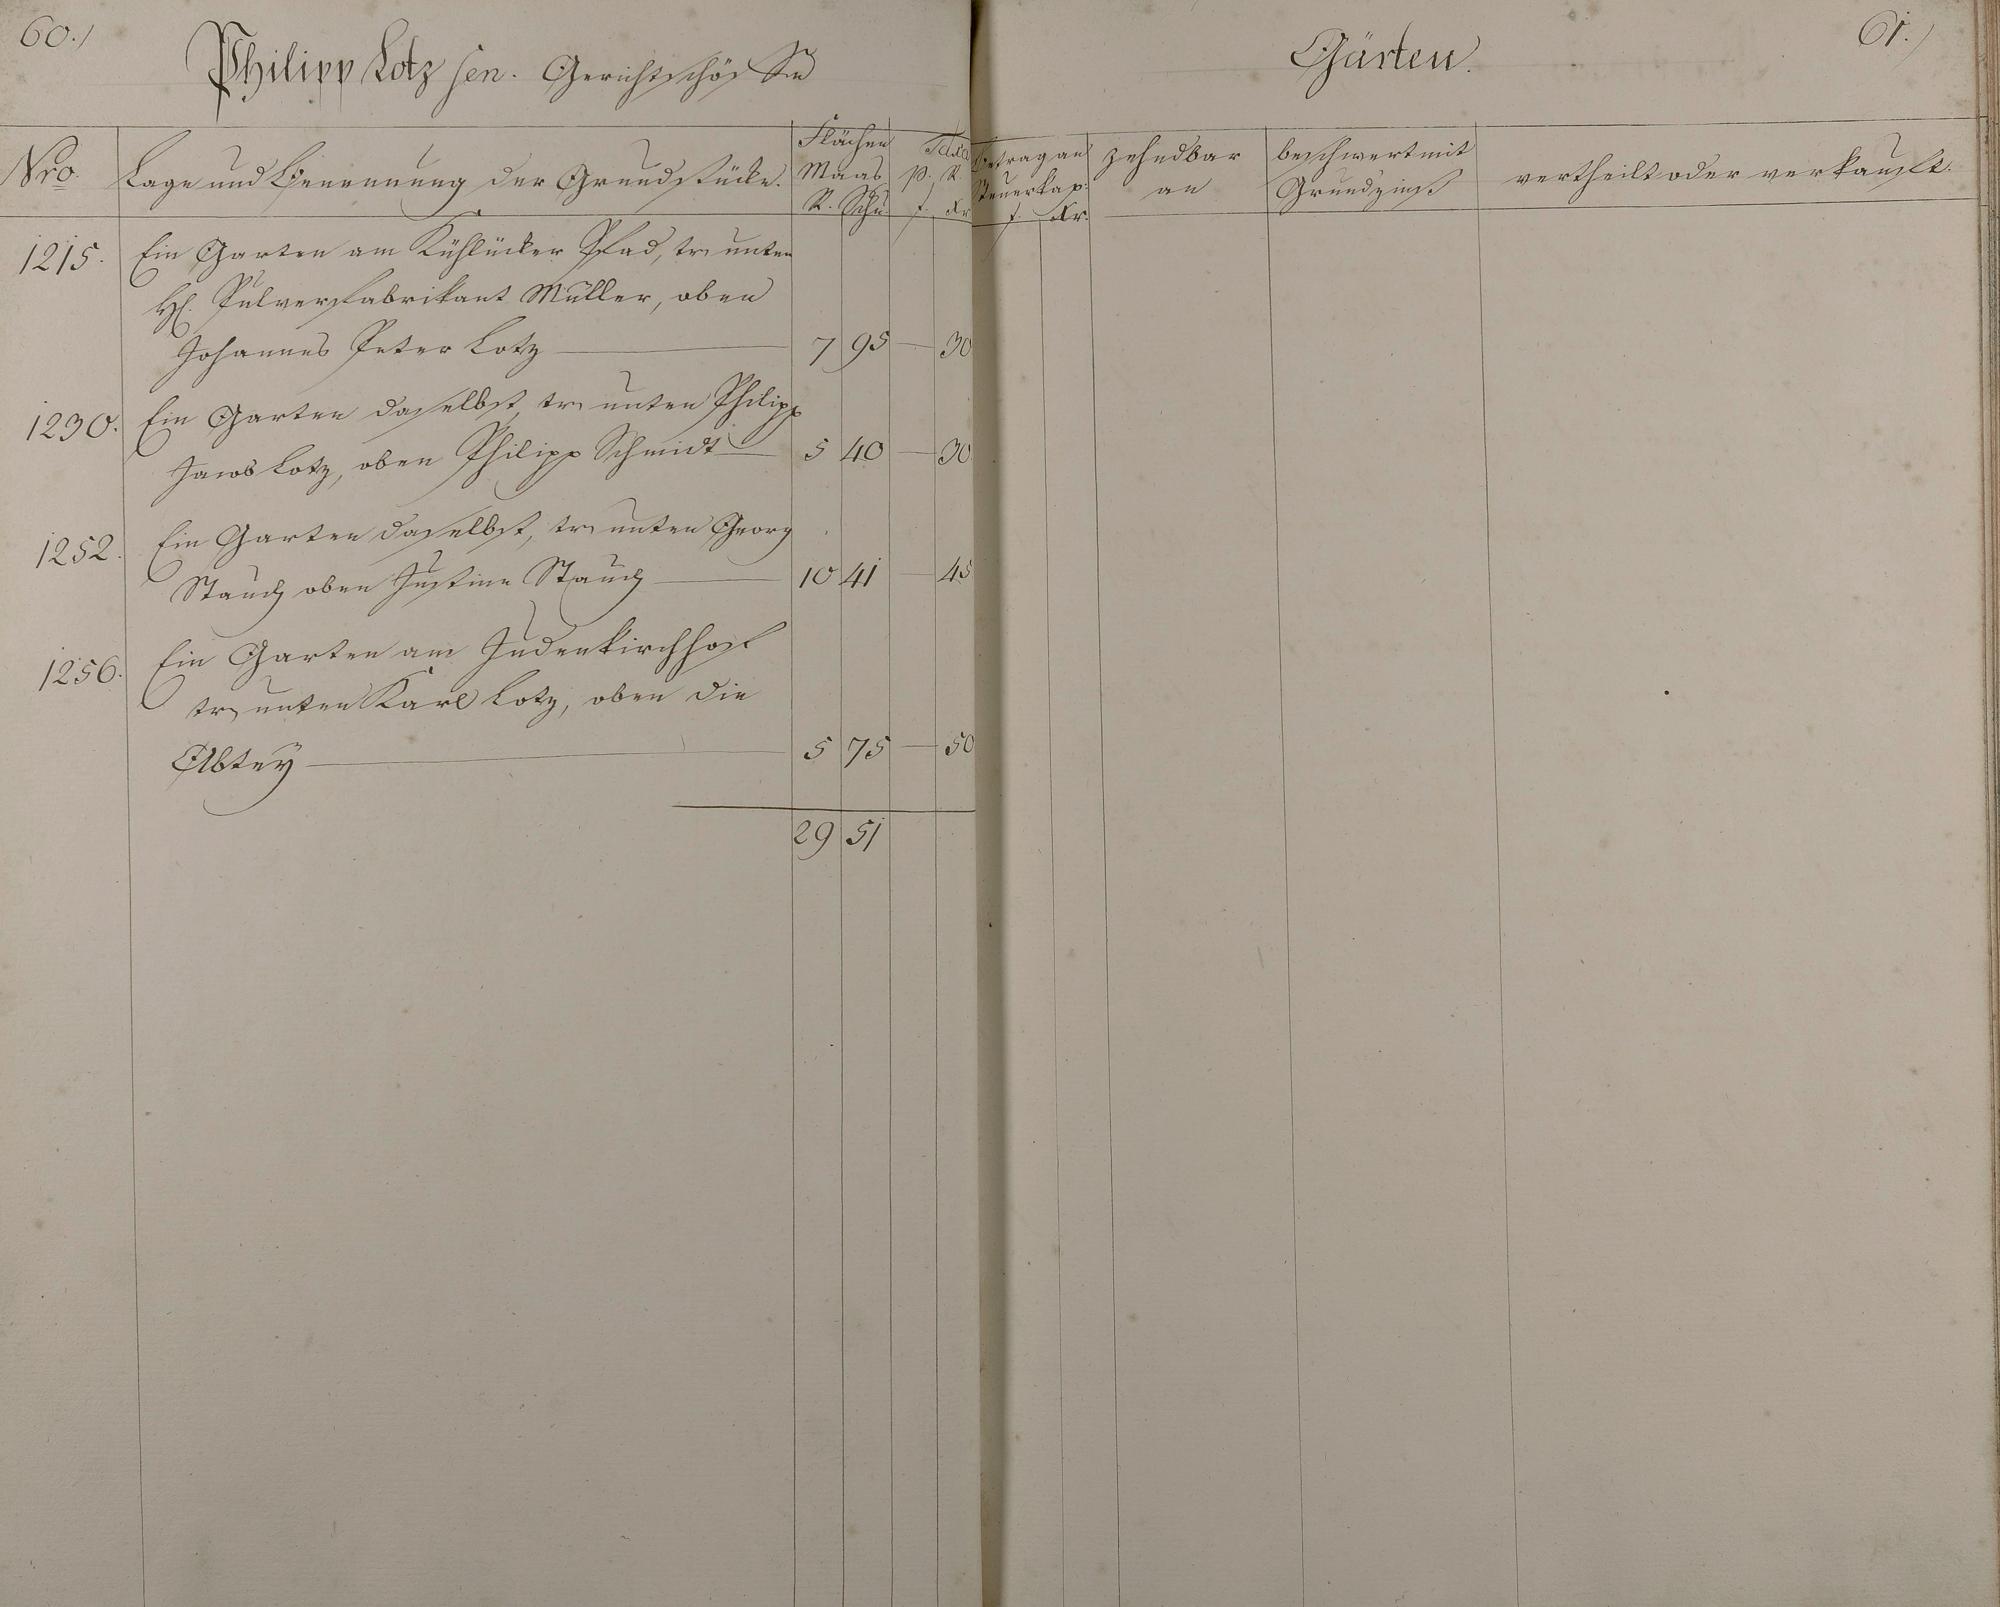 60.)
Philipp Lotz sen. Gerichtschöffe
Nro.
Lage und Benennung der Grundstücke.
Flächen
Maas
R. Schu.
Taxa
p. R.
f. Xr.
1215. Ein Garten am Kühlücker Pfad, tr. unten
H. Pulverfabrikant Müller, oben
Johannes Peter Lotz — 7 95 — 30
1230. Ein Garten daselbst, tr. unten Philipp
Jacob Lotz, oben Philipp Schmidt — 5 40 — 30.
1252. Ein Garten daselbst, tr. unten Georg
Stauch oben Justine Stauch — 10 41 — 45
1256. Ein Garten am Judenkirchhof
tr. unten Karl Lotz, oben die
Abtey — 5 75 — 50
29 51
61.)
Gärten.
Betrag an
Steuerkap:
f. Xr.
zehndbar
an
beschwert mit
Grundzinß
vertheilt oder verkauft.